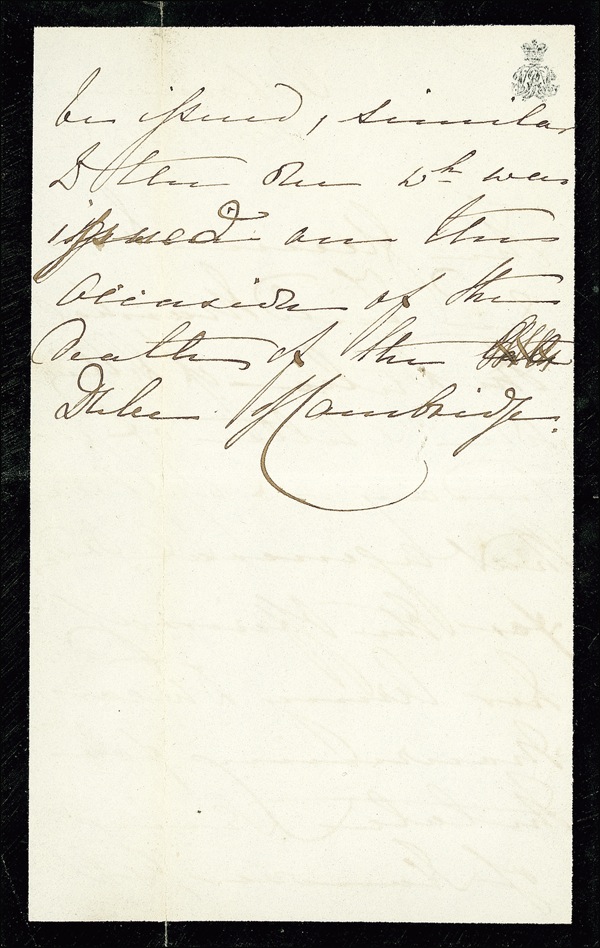 be issued, similar
to the one wh was
issued on the
occasion of the
death of the
Duke of Cambridge.